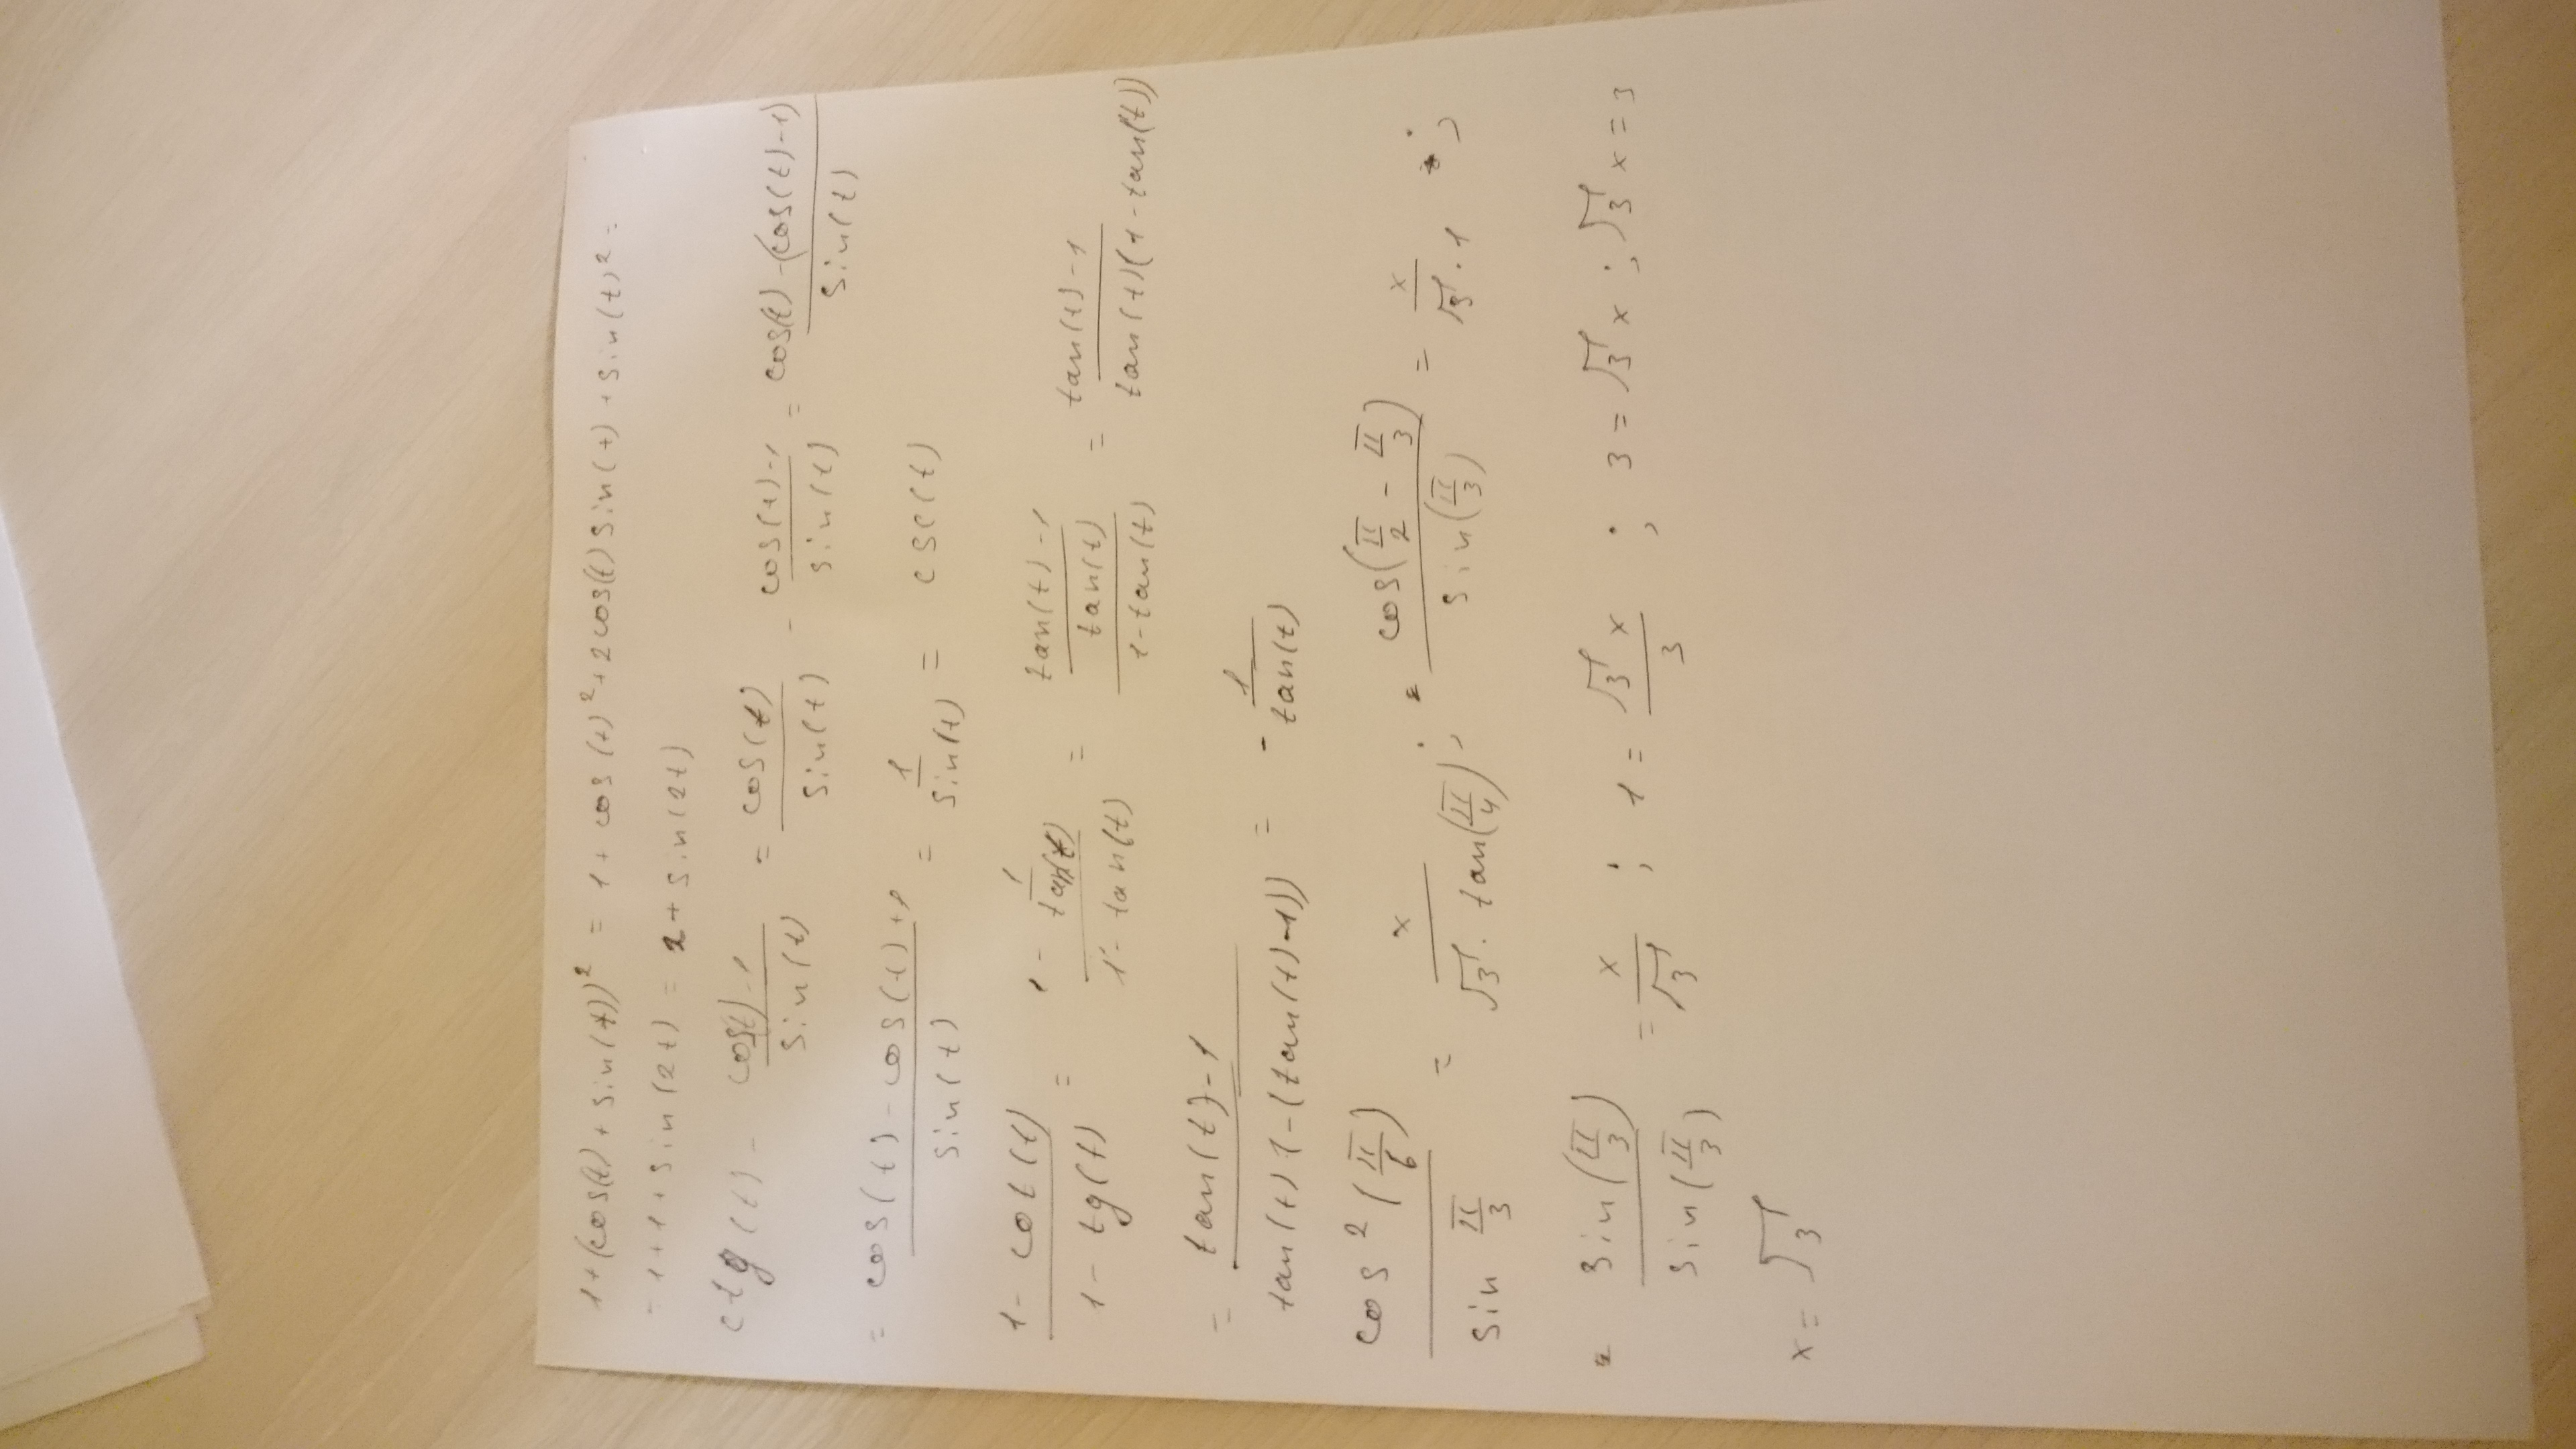 1+(cos(t)+sin(t))² = 1+cos(t)²+2cos(t)sin(t)+sin(t)² =
= 1+1+sin(2t) = 2+sin(2t)
ctg(t) - cos(t)-1/sin(t) = cos(t)/sin(t) - cos(t)-1/sin(t) = cos(t)-(cos(t)-1)/sin(t)
= cos(t)-cos(t)+1/sin(t) = 1/sin(t) = csc(t)
1-cot(t)/1-tg(t) = 1-1/tan(t)/1-tan(t) = tan(t)-1/tan(t)/1-tan(t) = tan(t)-1/tan(t)(1-tan(t))
= tan(t)-1/tan(t)(-(tan(t)-1)) = -1/tan(t)
cos²(π/6)/sin π/3 = x/√3·tan(π/4); = cos(π/2-π/3)/sin(π/3) = x/√3·1;
= sin(π/3)/sin(π/3) = x/√3; 1 = √3x/3; 3=√3x; √3x=3
x=√3